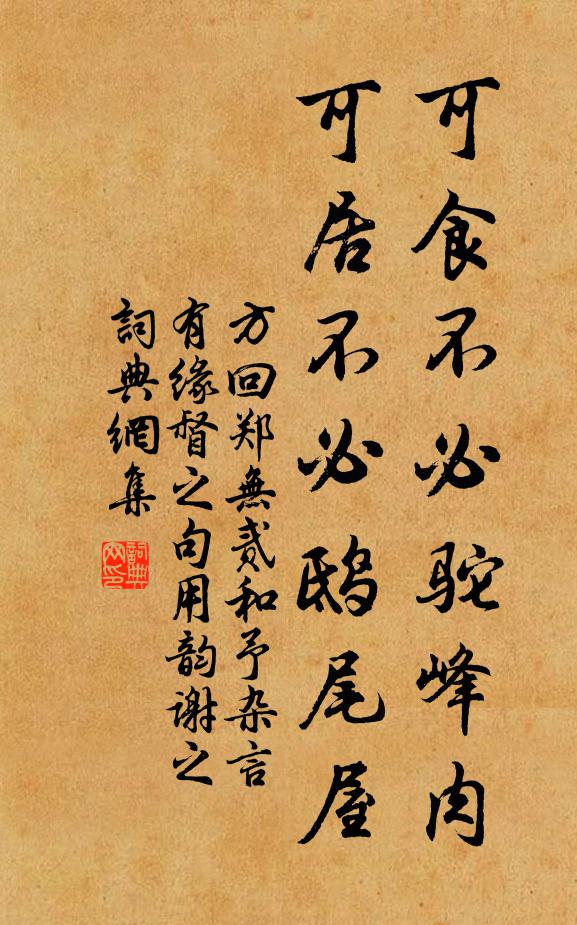 可食不必駝峰肉
可居不必鴟尾屋
方回郑無貳和予杂言
有缘督之句用韵谢之
詞典網集
詞典网印